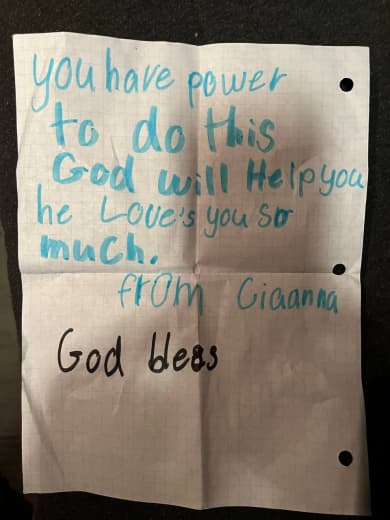 you have power
to do this
God will Help you
he Love's you so
much.
from Ciaanna
God bless